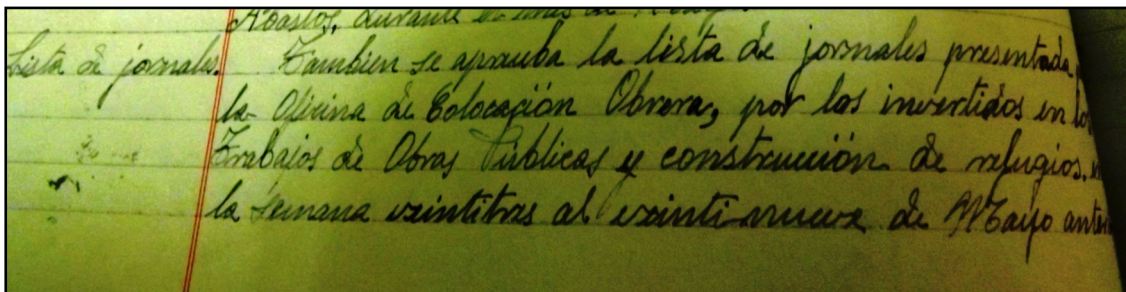 Abastos, durante el mes de
Lista de jornales. Tambien se aprueba la lista de jornales presentada
la Oficina de Colocación Obrera, por los invertidos en los
Trabajos de Obras Públicas y construcción de refugios, en
la semana veintitres al veintinueve de Mayo